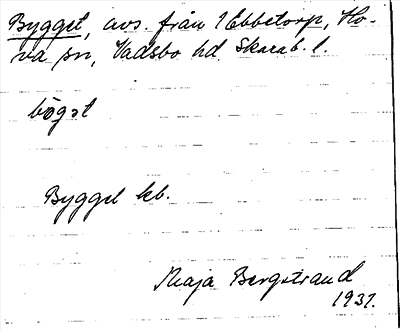 Bygget, avs. från 1 Ebbetorp, Ho-
va sn, Vadsbo hd Skarab. l.
bögət
Bygget kb.
Maja Bergstrand
1937.